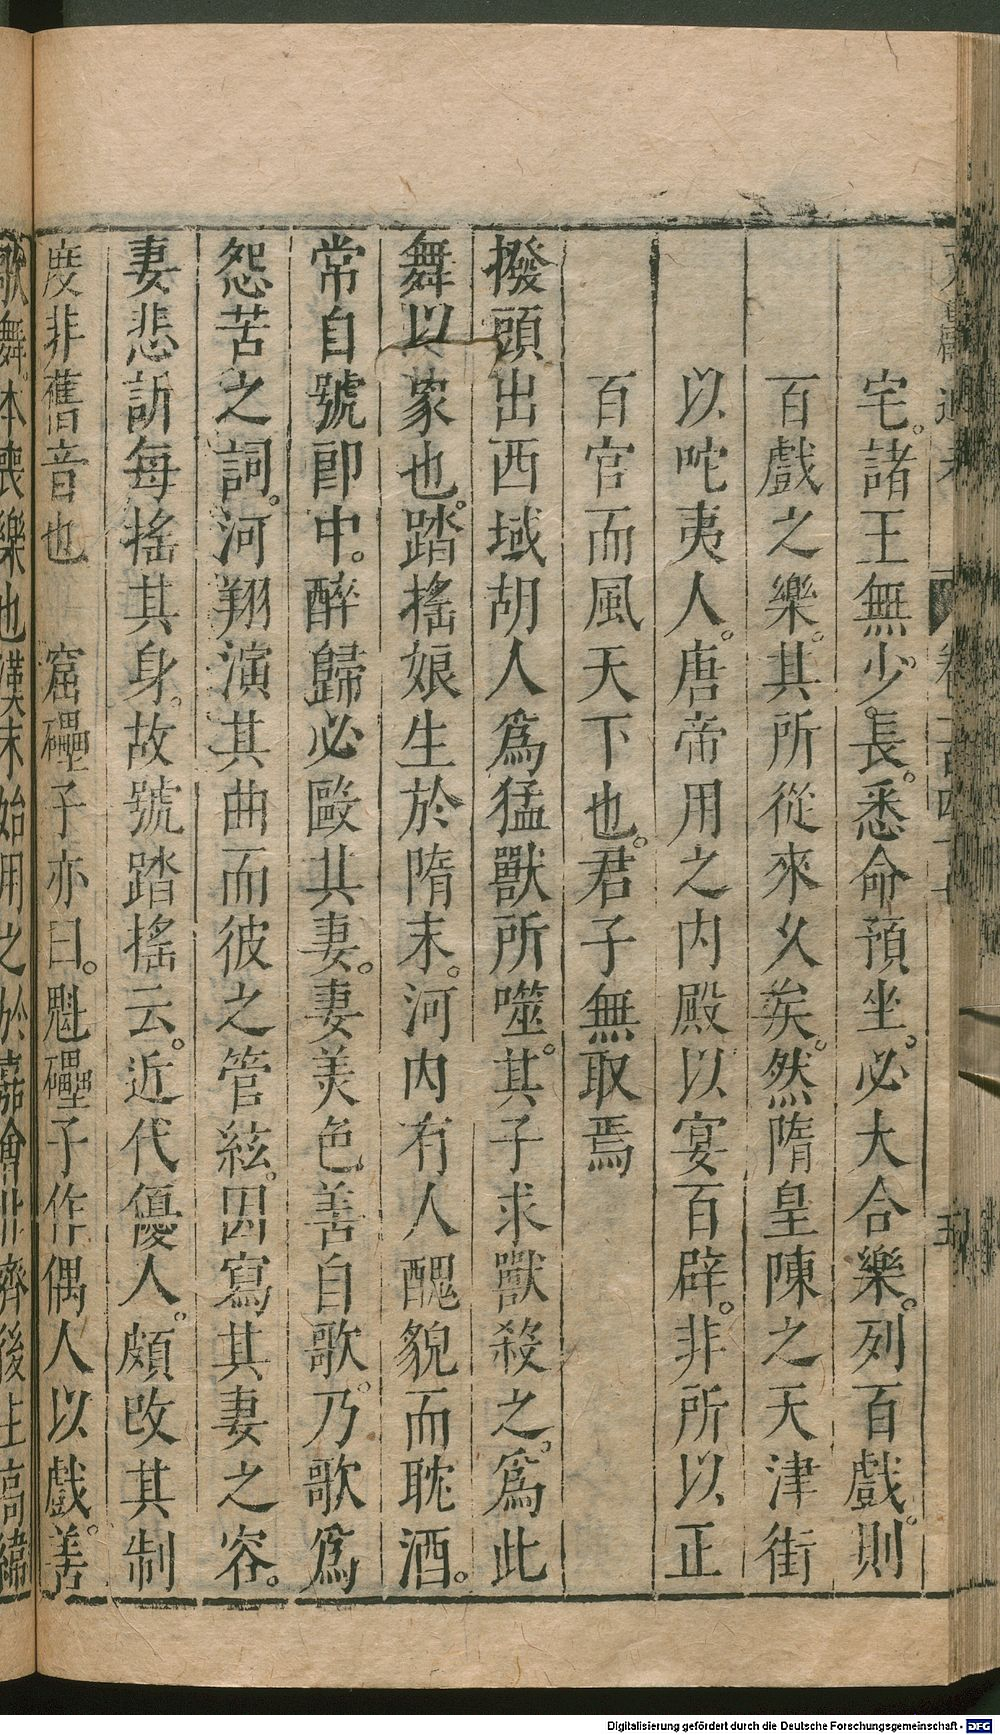 宅。諸王無少。長。悉命預坐。必大合樂。列百戲。則
百戲之樂。其所從來久矣。然隋皇陳之天津街
以咤夷人。唐帝用之内殿以宴百辟。非所以正
百官而風天下也。君子無取焉
撥頭出西域胡人爲猛獸所噬。其子求獸殺之。爲此
舞以象也。踏搖娘生於隋末。河内有人醜貌而耽酒。
常自號郎中。醉歸必毆其妻。妻美色。善自歌。乃歌爲
怨苦之詞。河朔演其曲而彼之管絃。因寫其妻之容。
妻悲訴每搖其身。故號踏搖云。近代優人。頗改其制
度非舊音也 窟礧子亦曰。魁礧子作偶人以戲。善
歌舞。本喪樂也漢末始用之於嘉會北齊後主高緯
Digitalisierung gefördert durch die Deutsche Forschungsgemeinschaft - DFG